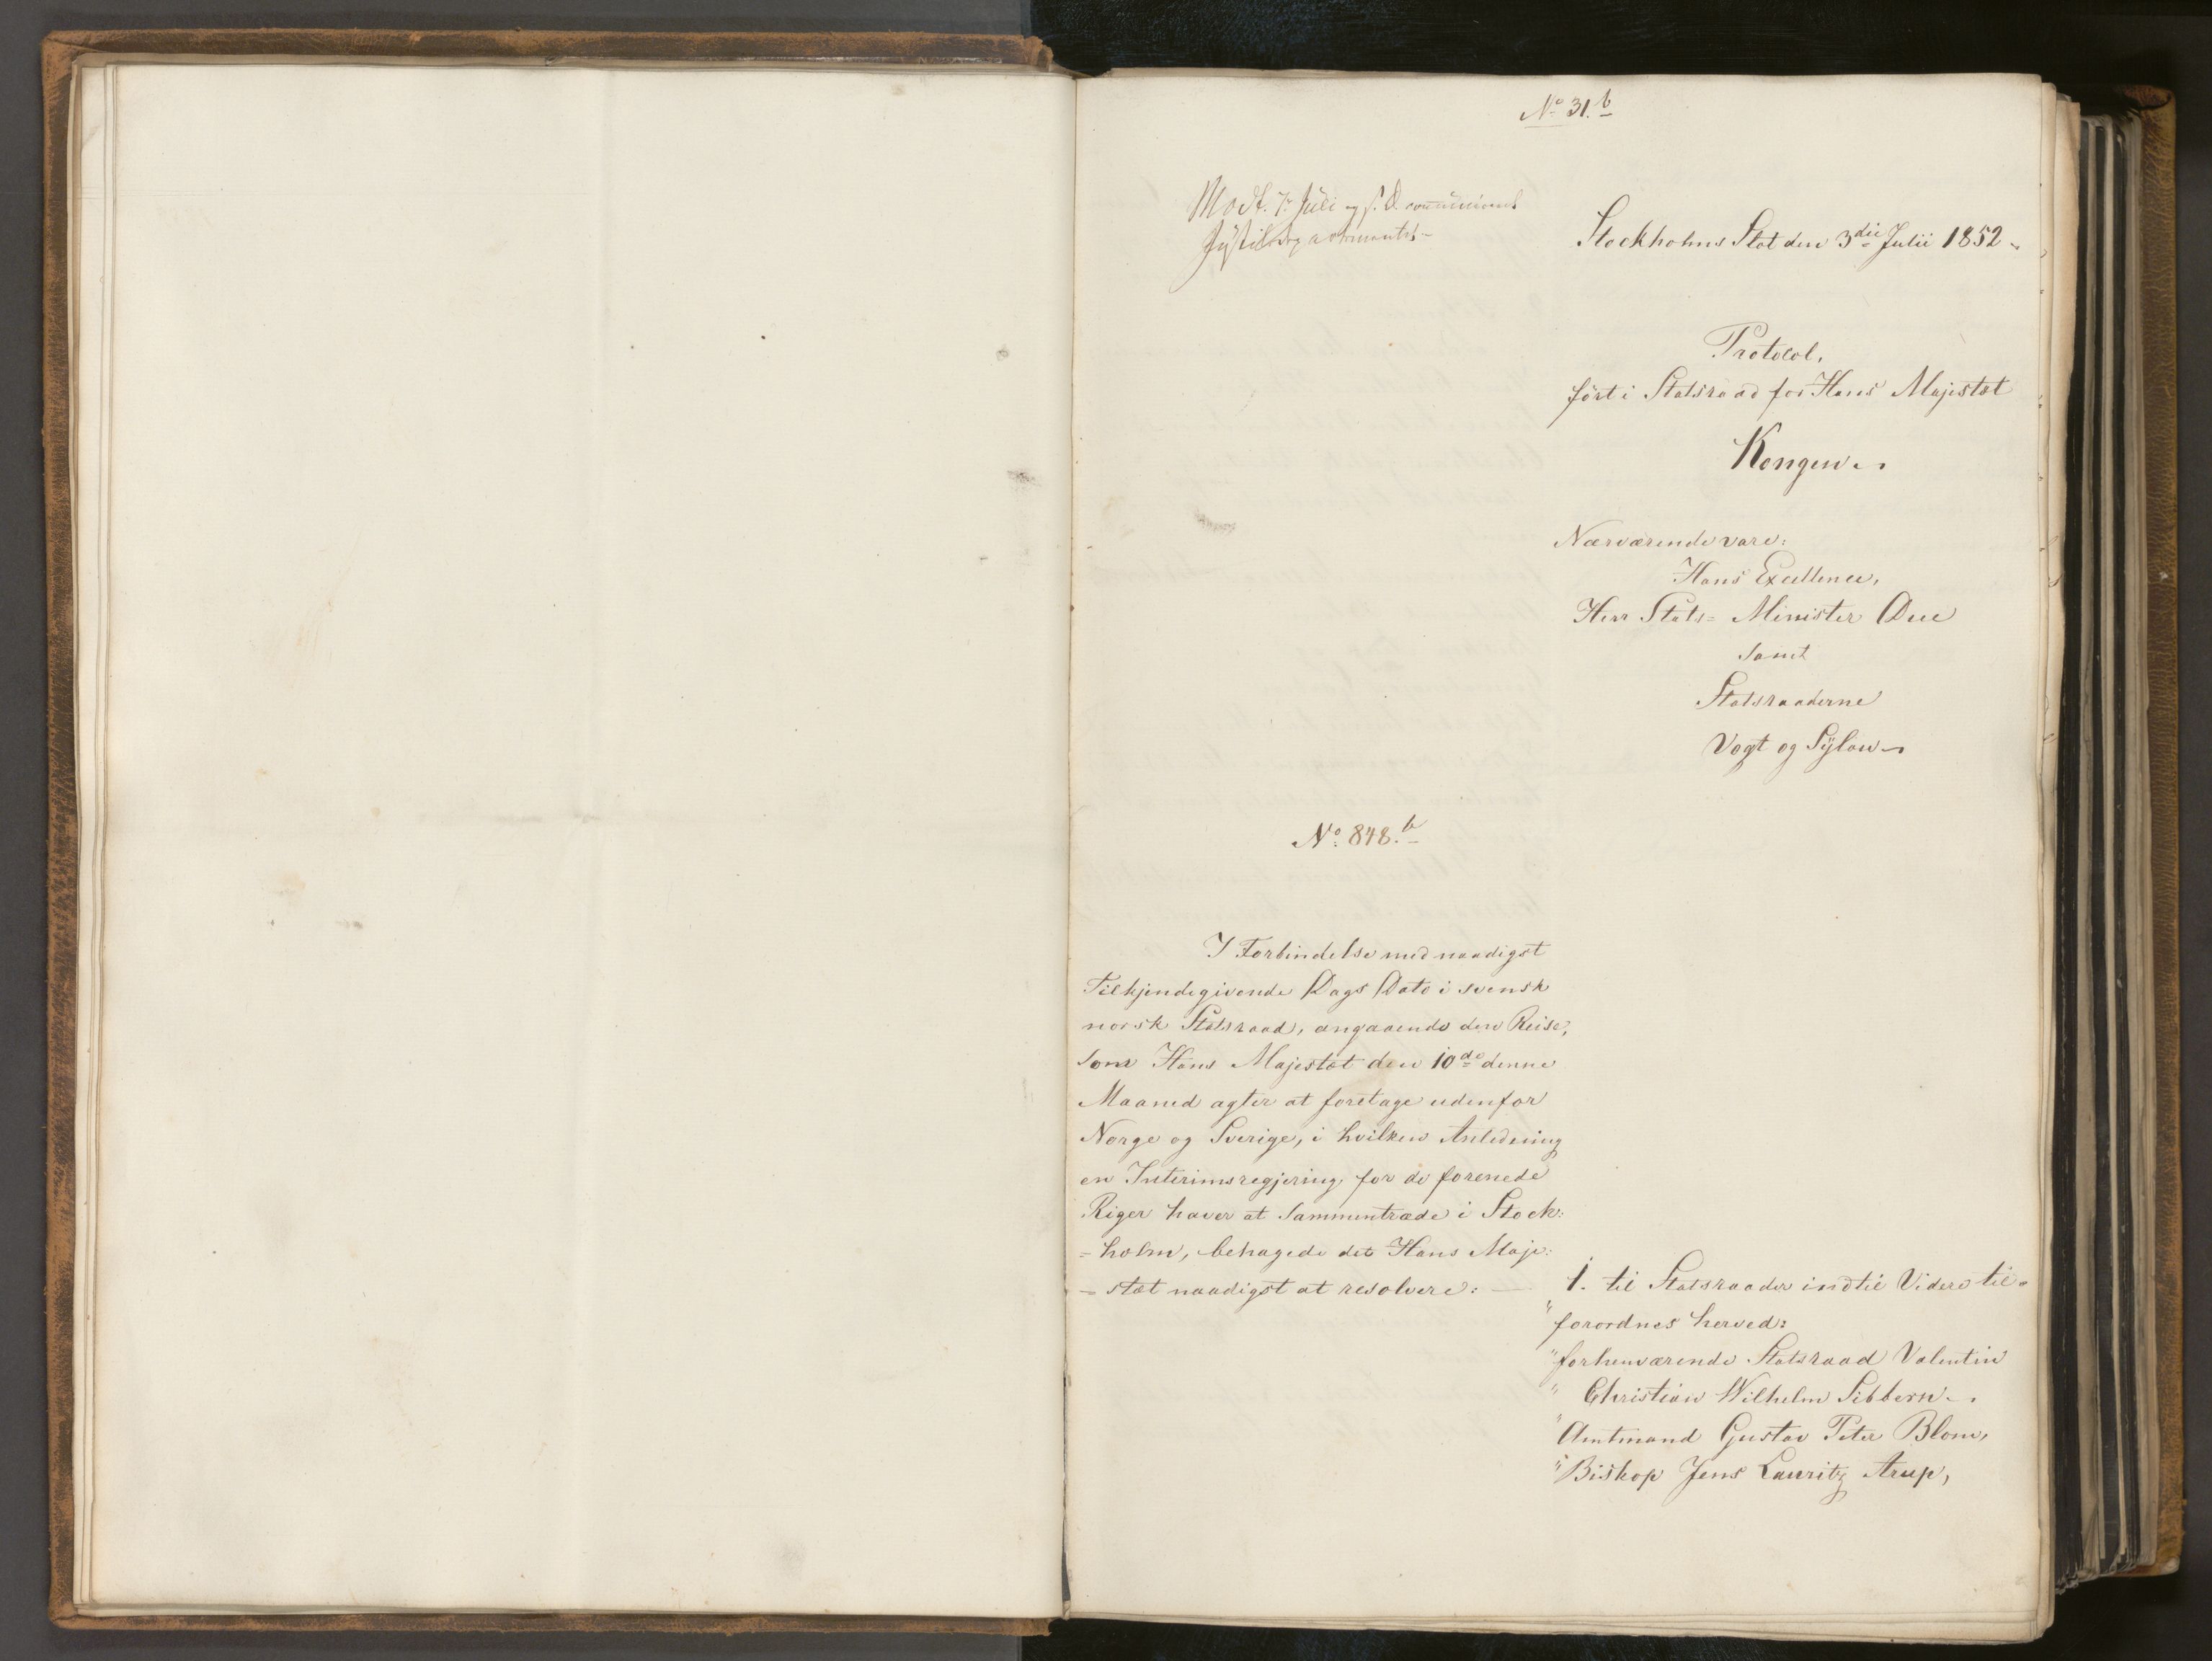 No 31.b
Modt. 7. Juli og s. D. communiceret
Justitsdepartementet
Stockholms Slot den 3die Julii 1852.
Protocol,
ført i Statsraad for Hans Majestæt
Kongen.
Nærværende vare:
Hans Excellence,
Herr Stats= Minister Due
samt
Statsraaderne
Vogt og Sylow.
No. 848.b
I Forbindelse med naadigst
Tilkjendegivende Dags Dato i svensk
norsk Statsraad, angaaende den Reise,
som Hans Majestæt den 10de denne
Maaned agter at foretage udenfor
Norge og Sverige, i hvilken Anledning
en Interimsregjering for de forenede
Riger haver at sammentræde i Stock=
=holm, behagede det Hans Maje=
=stæt naadigst at resolvere: —
"1. til Statsraader indtil Videre til=
"forordnes herved:
"forhenværende Statsraad Valentin
" Christian Wilhelm Sibbern.
"Amtmand Gustav Peter Blom,
"Biskop Jens Lauritz Arup,